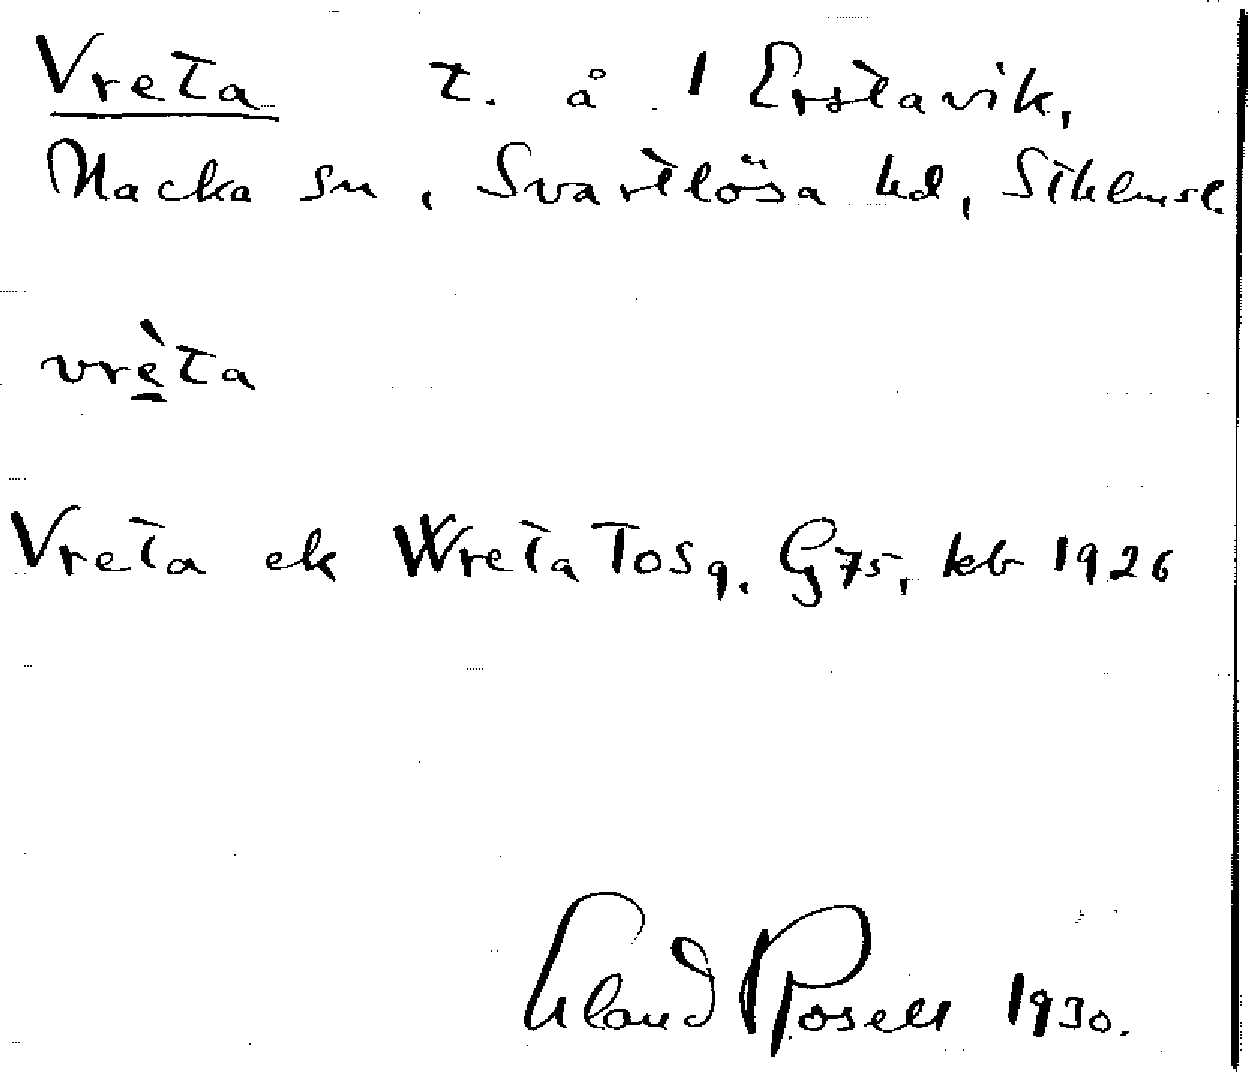 Vreta t. å 1 Erstavik,
Nacka sn, Svartlösa hd, Sthlmsl
vrèta
Vreta ek Wreta Tosq. G75, kb 1926
Erland Rosell 1930.